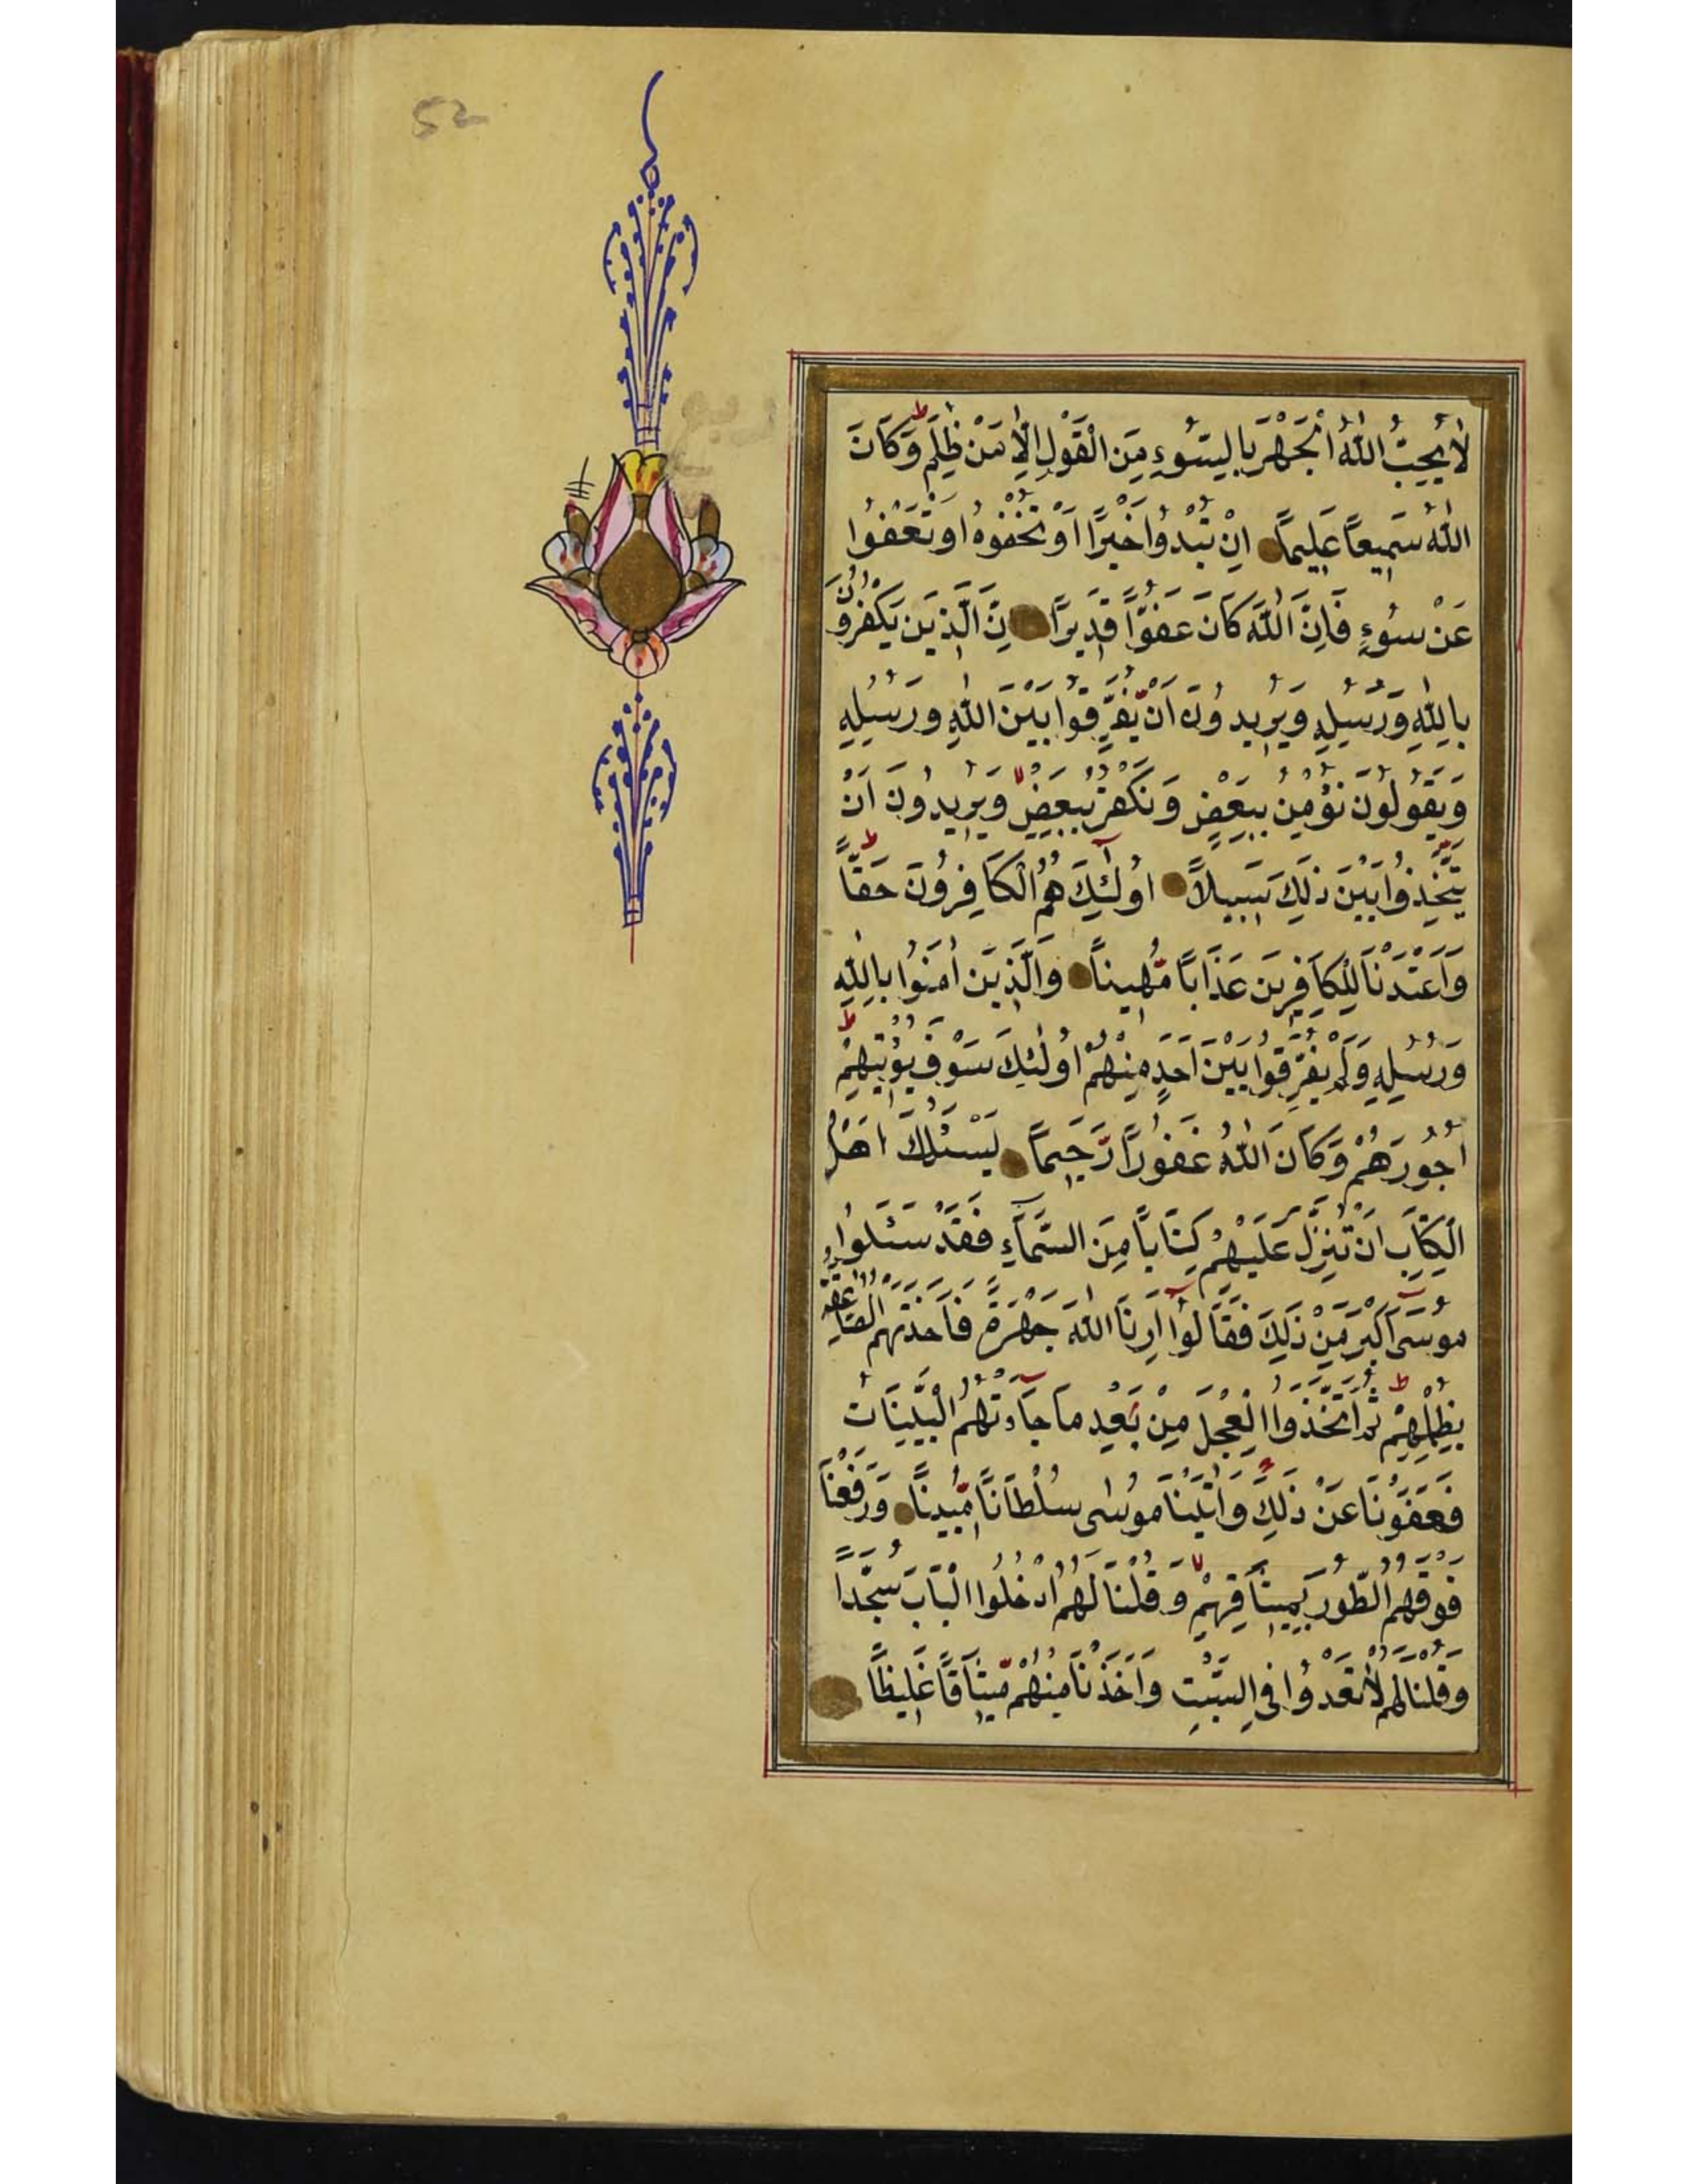 52
لَا يُحِبُّ اللّٰهُ الْجَهْرَ بِالسُّوءِ مِنَ الْقَوْلِ اِلَّا مَنْ ظُلِمَ ط وَكَانَ
اللّٰهُ سَمِيعًا عَلِيمًا اِنْ تُبْدُوا خَيْرًا اَوْ تُخْفُوهُ اَوْ تَعْفُوا
عَنْ سُوءٍ فَاِنَّ اللّٰهَ كَانَ عَفُوًّا قَدِيرًا اِنَّ الَّذِينَ يَكْفُرُونَ
بِاللّٰهِ وَرُسُلِهِ وَيُرِيدُونَ اَنْ يُفَرِّقُوا بَيْنَ اللّٰهِ وَرُسُلِهِ
وَيَقُولُونَ نُؤْمِنُ بِبَعْضٍ وَنَكْفُرُ بِبَعْضٍ لا وَيُرِيدُونَ اَنْ
يَتَّخِذُوا بَيْنَ ذٰلِكَ سَبِيلًا اُولٰئِكَ هُمُ الْكَافِرُونَ حَقًّا ط
وَاَعْتَدْنَا لِلْكَافِرِينَ عَذَابًا مُهِينًا وَالَّذِينَ اٰمَنُوا بِاللّٰهِ
وَرُسُلِهِ وَلَمْ يُفَرِّقُوا بَيْنَ اَحَدٍ مِنْهُمْ اُولٰئِكَ سَوْفَ يُؤْتِيهِمْ ط
اُجُورَهُمْ وَكَانَ اللّٰهُ غَفُورًا رَحِيمًا يَسْئَلُكَ اَهْلُ
الْكِتَابِ اَنْ تُنَزِّلَ عَلَيْهِمْ كِتَابًا مِنَ السَّمَاءِ فَقَدْ سَئَلُوا
مُوسٰى اَكْبَرَ مِنْ ذٰلِكَ فَقَالُوا اَرِنَا اللّٰهَ جَهْرَةً فَاَخَذَتْهُمُ الصَّاعِقَةُ
بِظُلْمِهِمْ ط ثُمَّ اتَّخَذُوا الْعِجْلَ مِنْ بَعْدِ مَا جَاءَتْهُمُ الْبَيِّنَاتُ
فَعَفَوْنَا عَنْ ذٰلِكَ وَاٰتَيْنَا مُوسٰى سُلْطَانًا مُبِينًا وَرَفَعْنَا
فَوْقَهُمُ الطُّورَ بِمِيثَاقِهِمْ لا وَقُلْنَا لَهُمُ ادْخُلُوا الْبَابَ سُجَّدًا
وَقُلْنَا لَهُمْ لَا تَعْدُوا فِي السَّبْتِ وَاَخَذْنَا مِنْهُمْ مِيثَاقًا غَلِيظًا